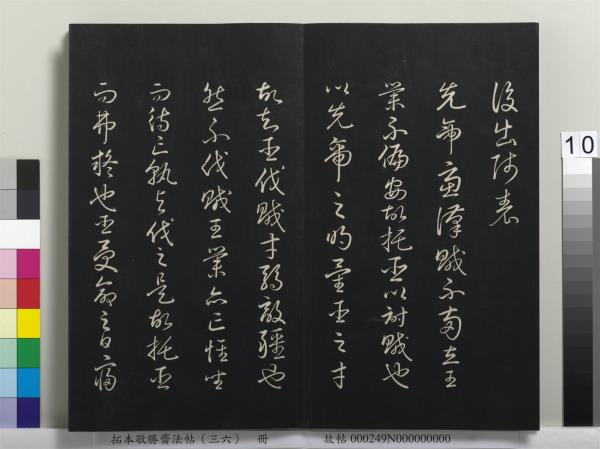 後出師表
先帝慮漢賊不兩立王
業不偏安故托臣以討賊也
以先帝之明量臣之才
故知臣伐賊才弱敵彊也
然不伐賊王業亦亡惟坐
而待亡孰與伐之是故托臣
而弗疑也臣受命之日寢
10
拓本敬勝齋法帖(三六) 冊 故帖 000249N000000000